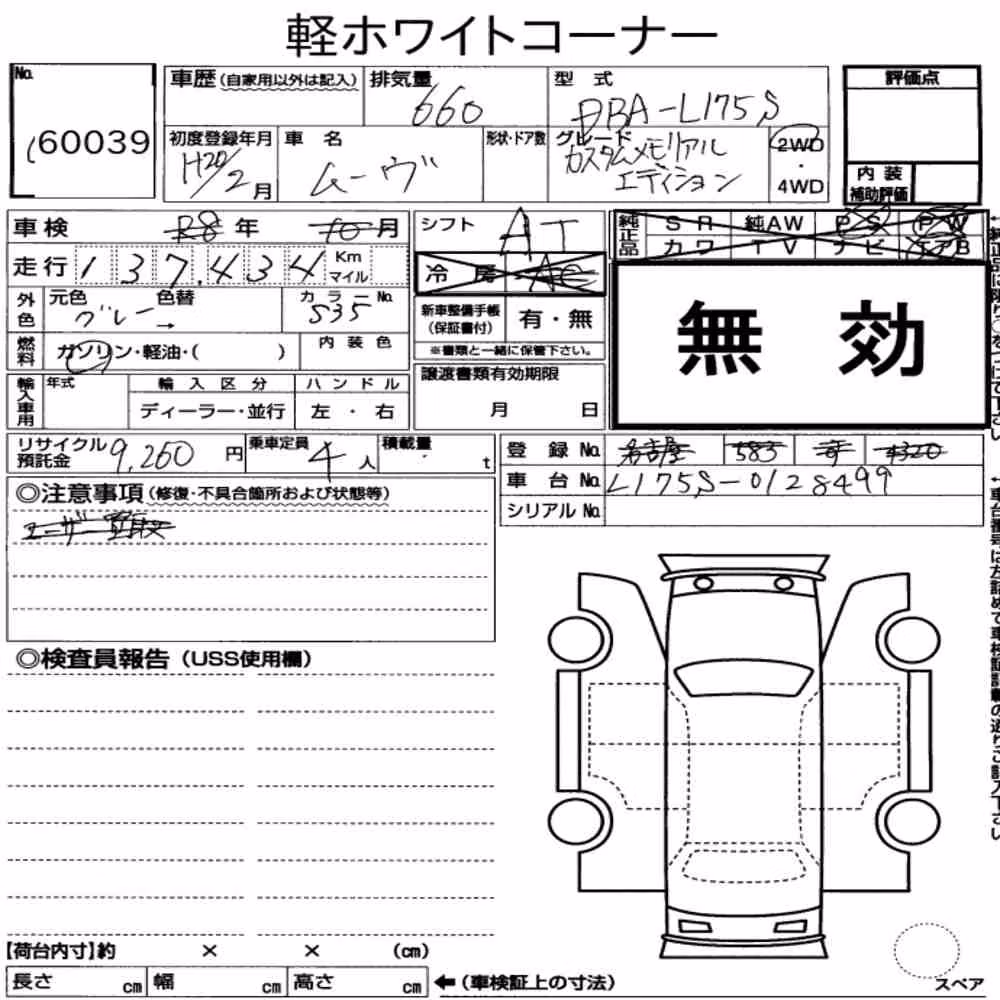 軽ホワイトコーナー
No.
60039
車歴(自家用以外は記入)
排気量
660
型 式
DBA-L175S
評価点
初度登録年月
H20/2月
車 名
ムーヴ
形状・ドア数
グレード
カスタムメモリアル
エディション
2WD
・
4WD
内 装
補助評価
車 検 R8 年 10 月
シフト AT
純正品
S R 純AW P S P W
カ ワ T V ナ ビ エアB
走 行 137,434 Km
マイル
冷 房 AC
外色
元色 色替
グレー→
カ ラ ー No.
S35
新車整備手帳
(保証書付)
有・無
※書類と一緒に保管下さい。
無 効
燃料
ガソリン・軽油・( )
内 装 色
輸入車用
年式
輸 入 区 分
ハ ン ド ル
ディーラー・並行
左 ・ 右
譲渡書類有効期限
月 日
リサイクル
預託金
9,260 円
乗車定員
4 人
積載量
t
登 録 No. 名古屋 583 4320
車 台 No. L175S-0128499
シリアル No.
◎注意事項(修復・不具合箇所および状態等)
ユーザー買取
◎検査員報告(USS使用欄)
【荷台内寸】約 × × (cm)
長さ cm 幅 cm 高さ cm ←(車検証上の寸法)
スペア